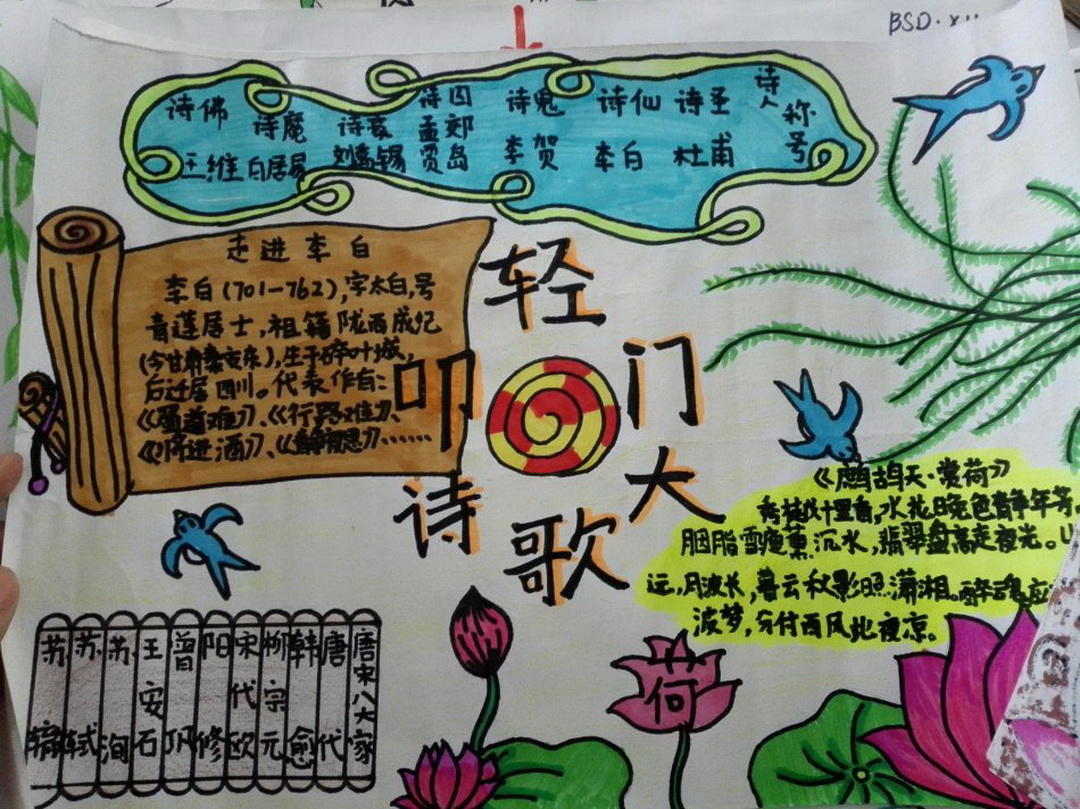 BSD·X
诗人称号
诗圣 杜甫
诗仙 李白
诗鬼 李贺
诗囚 孟郊 贾岛
诗豪 刘禹锡
诗魔 白居易
诗佛 王维
走进李白
李白(701-762),字太白,号
青莲居士,祖籍陇西成纪
(今甘肃秦安东),生于碎叶城,
后迁居四川。代表作有:
《蜀道难》、《行路难》、
《将进酒》、《静夜思》……
轻叩诗歌大门
《鹧鸪天·赏荷》
十里香,水花晚色静年芳
胭脂雪瘦薰沉水,翡翠盘高走夜光。
远,月波长,暮云秋影照潇湘。醉魂应
波梦,分付西风此夜凉。
荷
唐宋八大家
唐代
韩愈
柳宗元
宋代欧
阳修
曾巩
王安石
苏洵
苏轼
苏